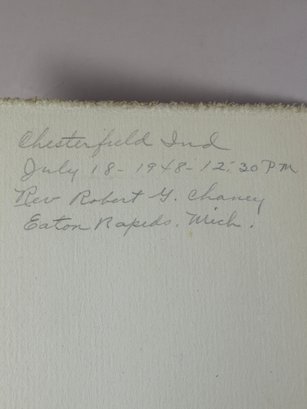 Chesterfield Ind
July 18-1948-12:30 PM
Rev Robert G. Chaney
Eaton Rapids. Mich.